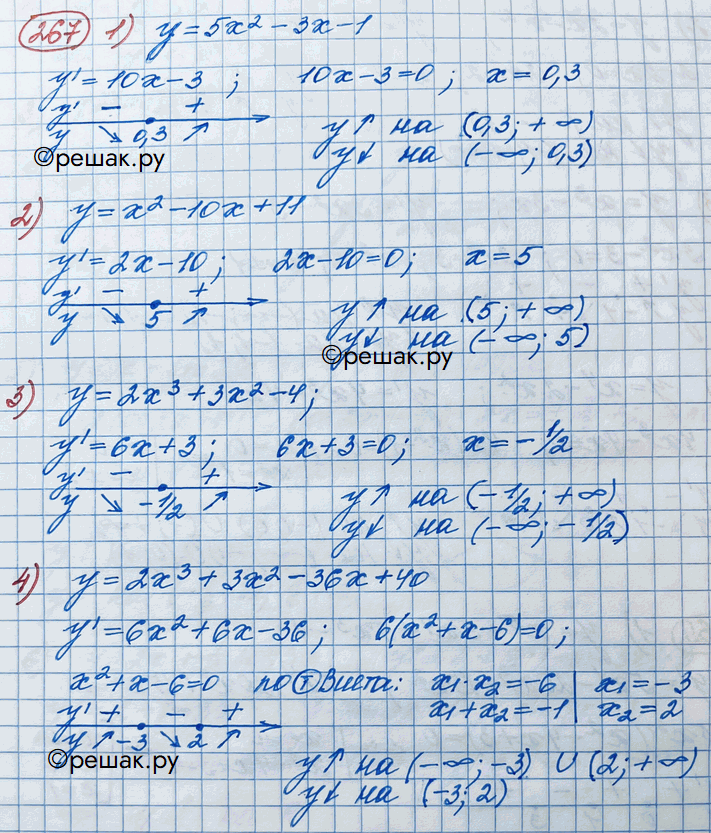 267 1) y = 5x² - 3x - 1
y' = 10x - 3 ; 10x - 3 = 0 ; x = 0,3
y' - +
y ↘ 0,3 ↗ y↑ на (0,3; +∞)
©решак.ру y↓ на (-∞; 0,3)
2) y = x² - 10x + 11
y' = 2x - 10 ; 2x - 10 = 0 ; x = 5
y' - +
y ↘ 5 ↗ y↑ на (5; +∞)
y↓ на (-∞; 5)
©решак.ру
3) y = 2x³ + 3x² - 4 ;
y' = 6x + 3 ; 6x + 3 = 0 ; x = -1/2
y' - +
y ↘ -1/2 ↗ y↑ на (-1/2; +∞)
y↓ на (-∞; -1/2)
4) y = 2x³ + 3x² - 36x + 40
y' = 6x² + 6x - 36 ; 6(x² + x - 6) = 0 ;
x² + x - 6 = 0 по Ⓣ Виета: x₁·x₂ = -6 | x₁ = -3
x₁ + x₂ = -1 | x₂ = 2
y' + - +
y ↗ -3 ↘ 2 ↗
©решак.ру y↑ на (-∞; -3) ∪ (2; +∞)
y↓ на (-3; 2)